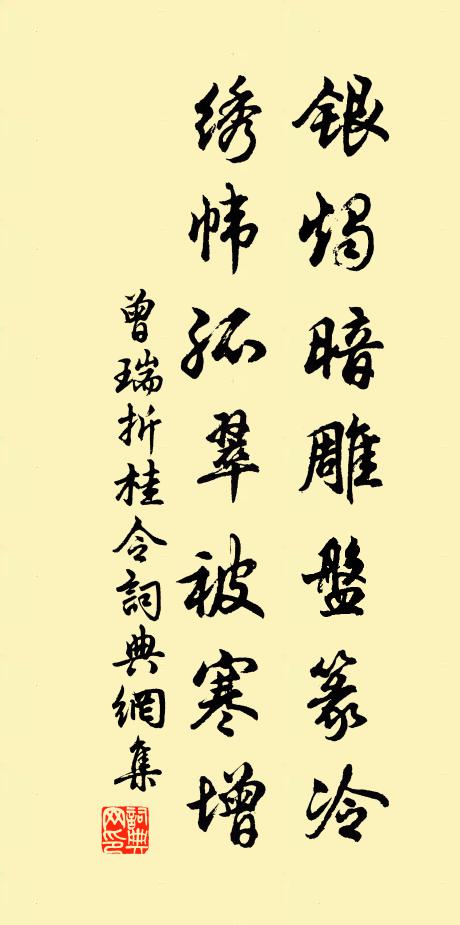 银烛暗雕盘篆冷
绣帏孤翠被寒增
曾瑞折桂令詞典網集
詞典网印